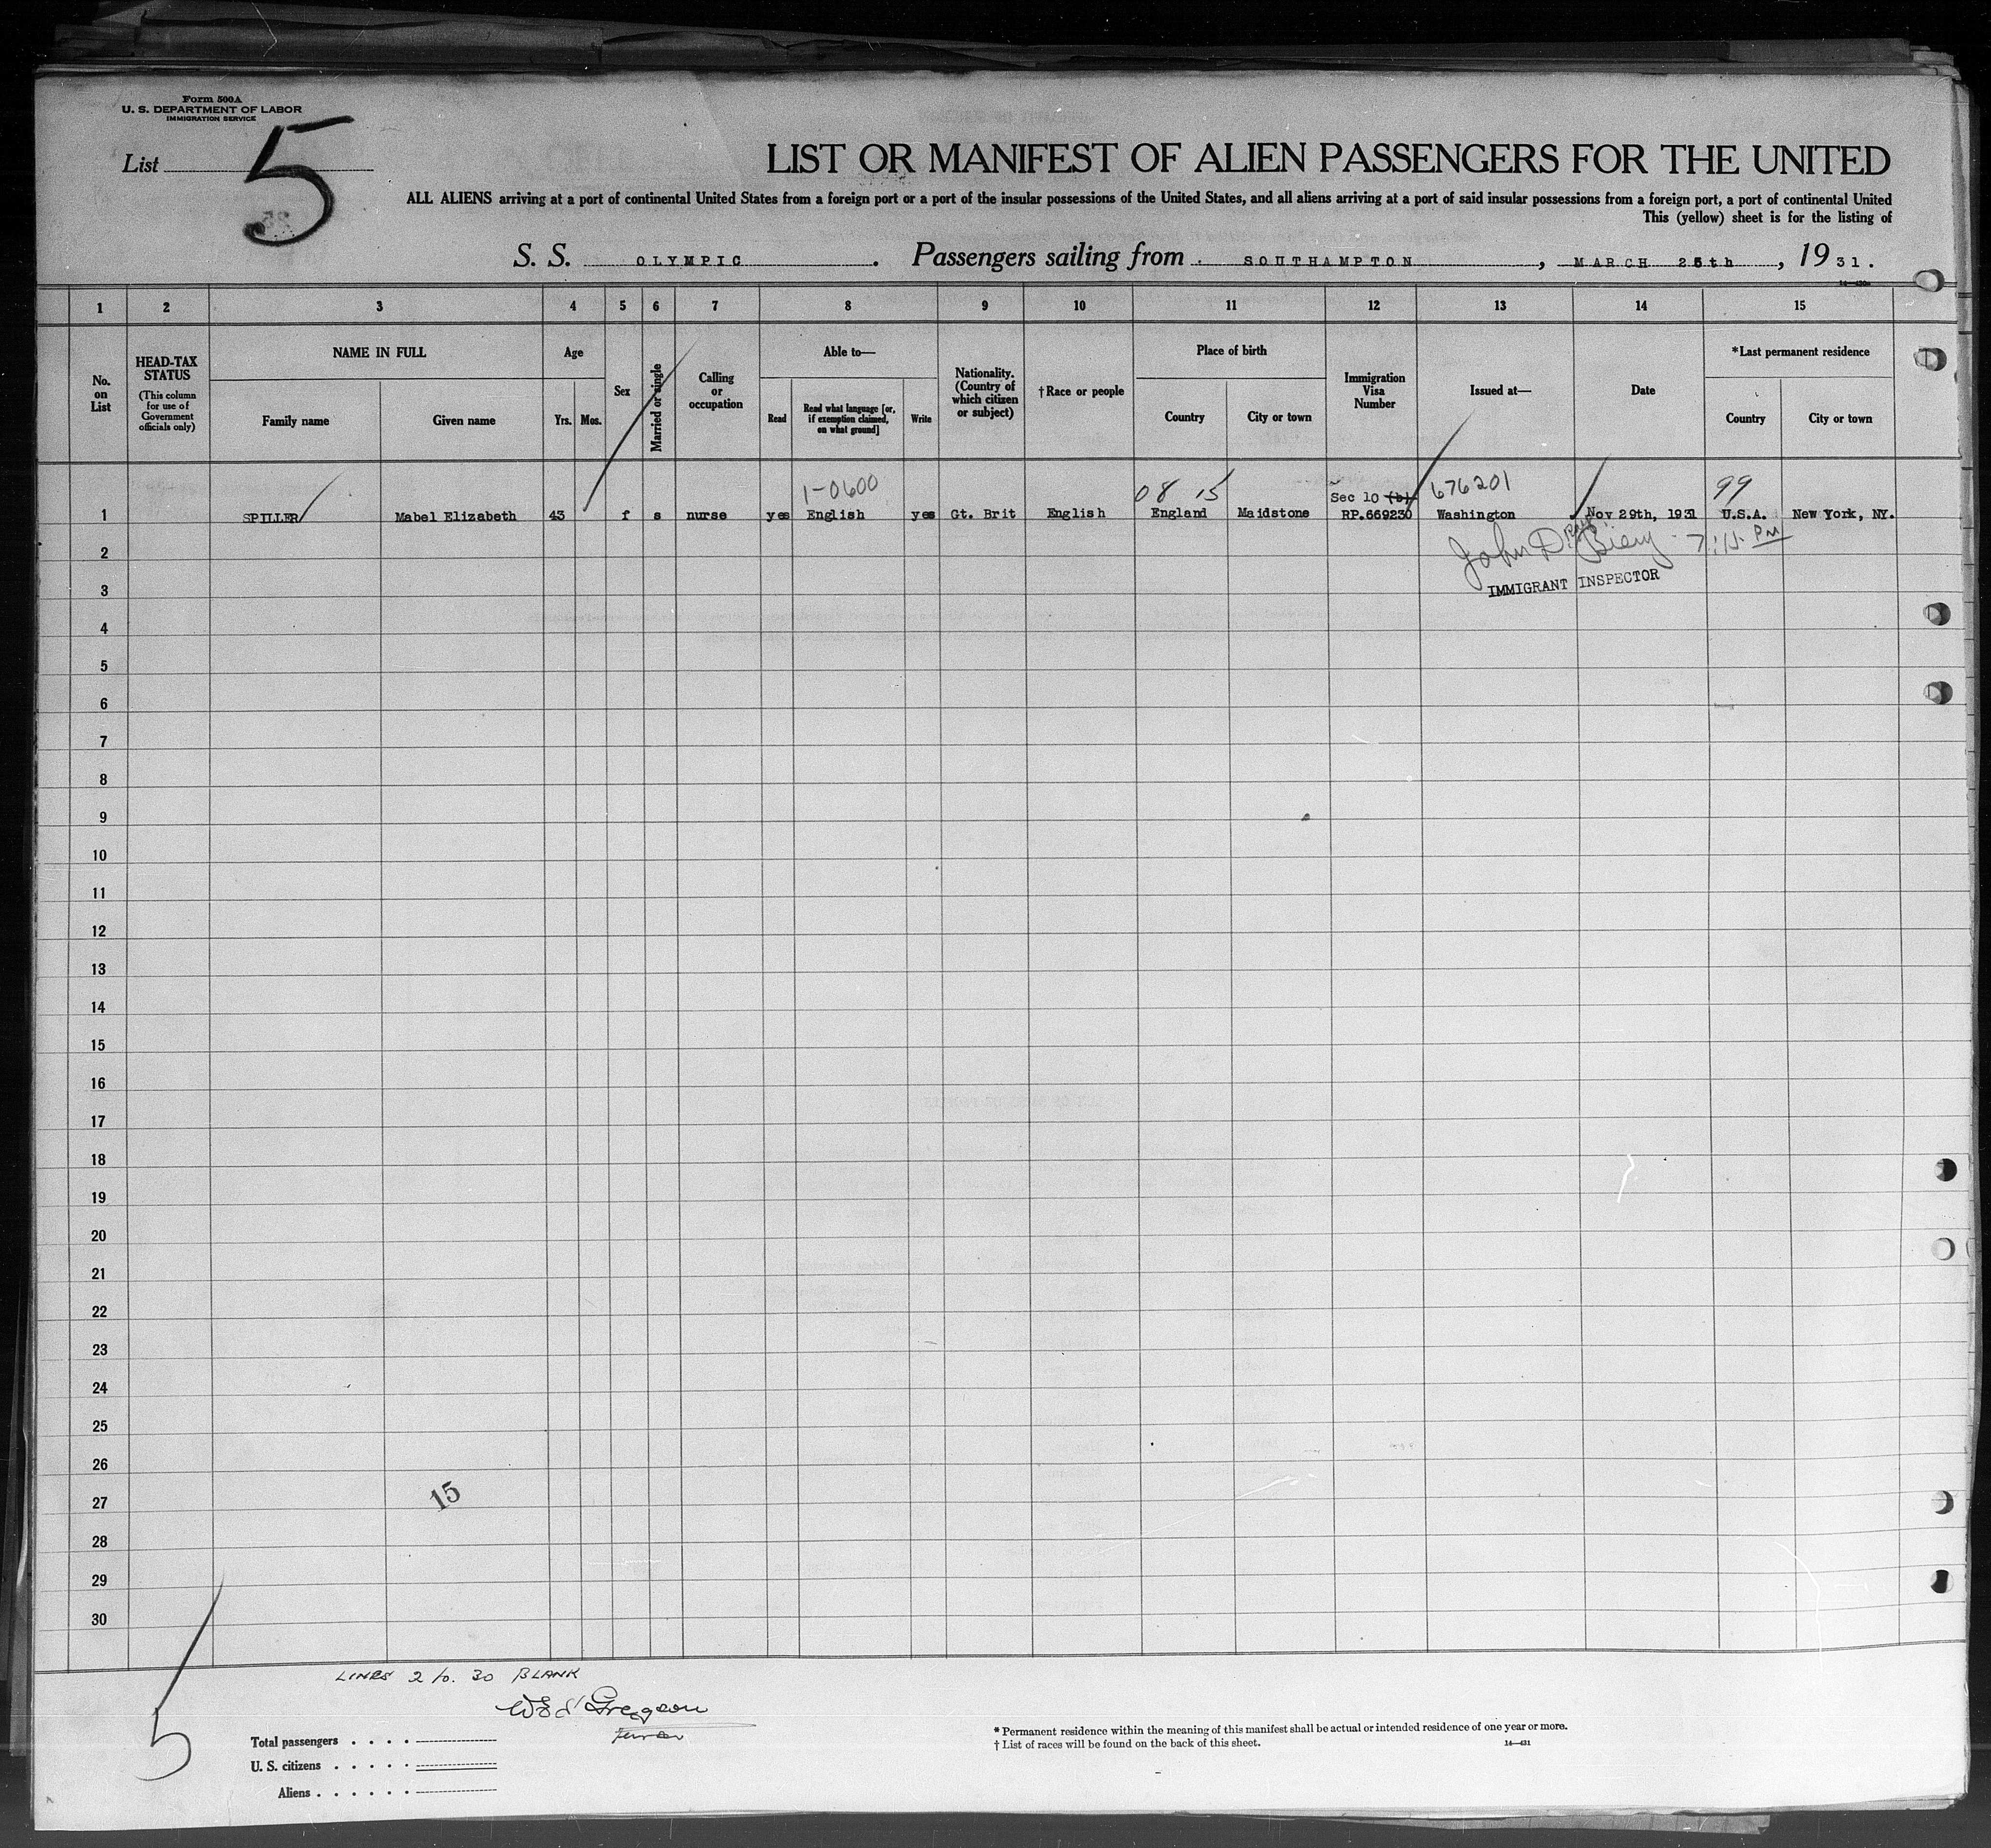 Form 500A
U. S. DEPARTMENT OF LABOR
IMMIGRATION SERVICE
List 5
LIST OR MANIFEST OF ALIEN PASSENGERS FOR THE UNITED
ALL ALIENS arriving at a port of continental United States from a foreign port or a port of the insular possessions of the United States, and all aliens arriving at a port of said insular possessions from a foreign port, a port of continental United
This (yellow) sheet is for the listing of
S. S. OLYMPIC. Passengers sailing from SOUTHAMPTON, MARCH 25th, 1931.
1 2 3 4 5 6 7 8 9 10 11 12 13 14 15
No. on List
HEAD-TAX STATUS
(This column for use of Government officials only)
NAME IN FULL
Family name Given name
Age
Yrs. Mos.
Sex
Married or single
Calling or occupation
Able to—
Read
Read what language [or, if exemption claimed, on what ground]
Write
Nationality. (Country of which citizen or subject)
†Race or people
Place of birth
Country City or town
Immigration Visa Number
Issued at—
Date
*Last permanent residence
Country City or town
1-0600 08 15 Sec 10 (b) 676201 99
1 SPILLER Mabel Elizabeth 43 f s nurse yes English yes Gt. Brit English England Maidstone RP.669230 Washington Nov 29th, 1931 U.S.A. New York, NY.
2
John D Biery 7:15 PM
3
IMMIGRANT INSPECTOR
4
5
6
7
8
9
10
11
12
13
14
15
16
17
18
19
20
21
22
23
24
25
26
27
15
28
29
30
LINES 2 to. 30 BLANK
5
Total passengers . . . .
U. S. citizens . . . . .
Aliens . . . . . .
* Permanent residence within the meaning of this manifest shall be actual or intended residence of one year or more.
† List of races will be found on the back of this sheet.
14—431